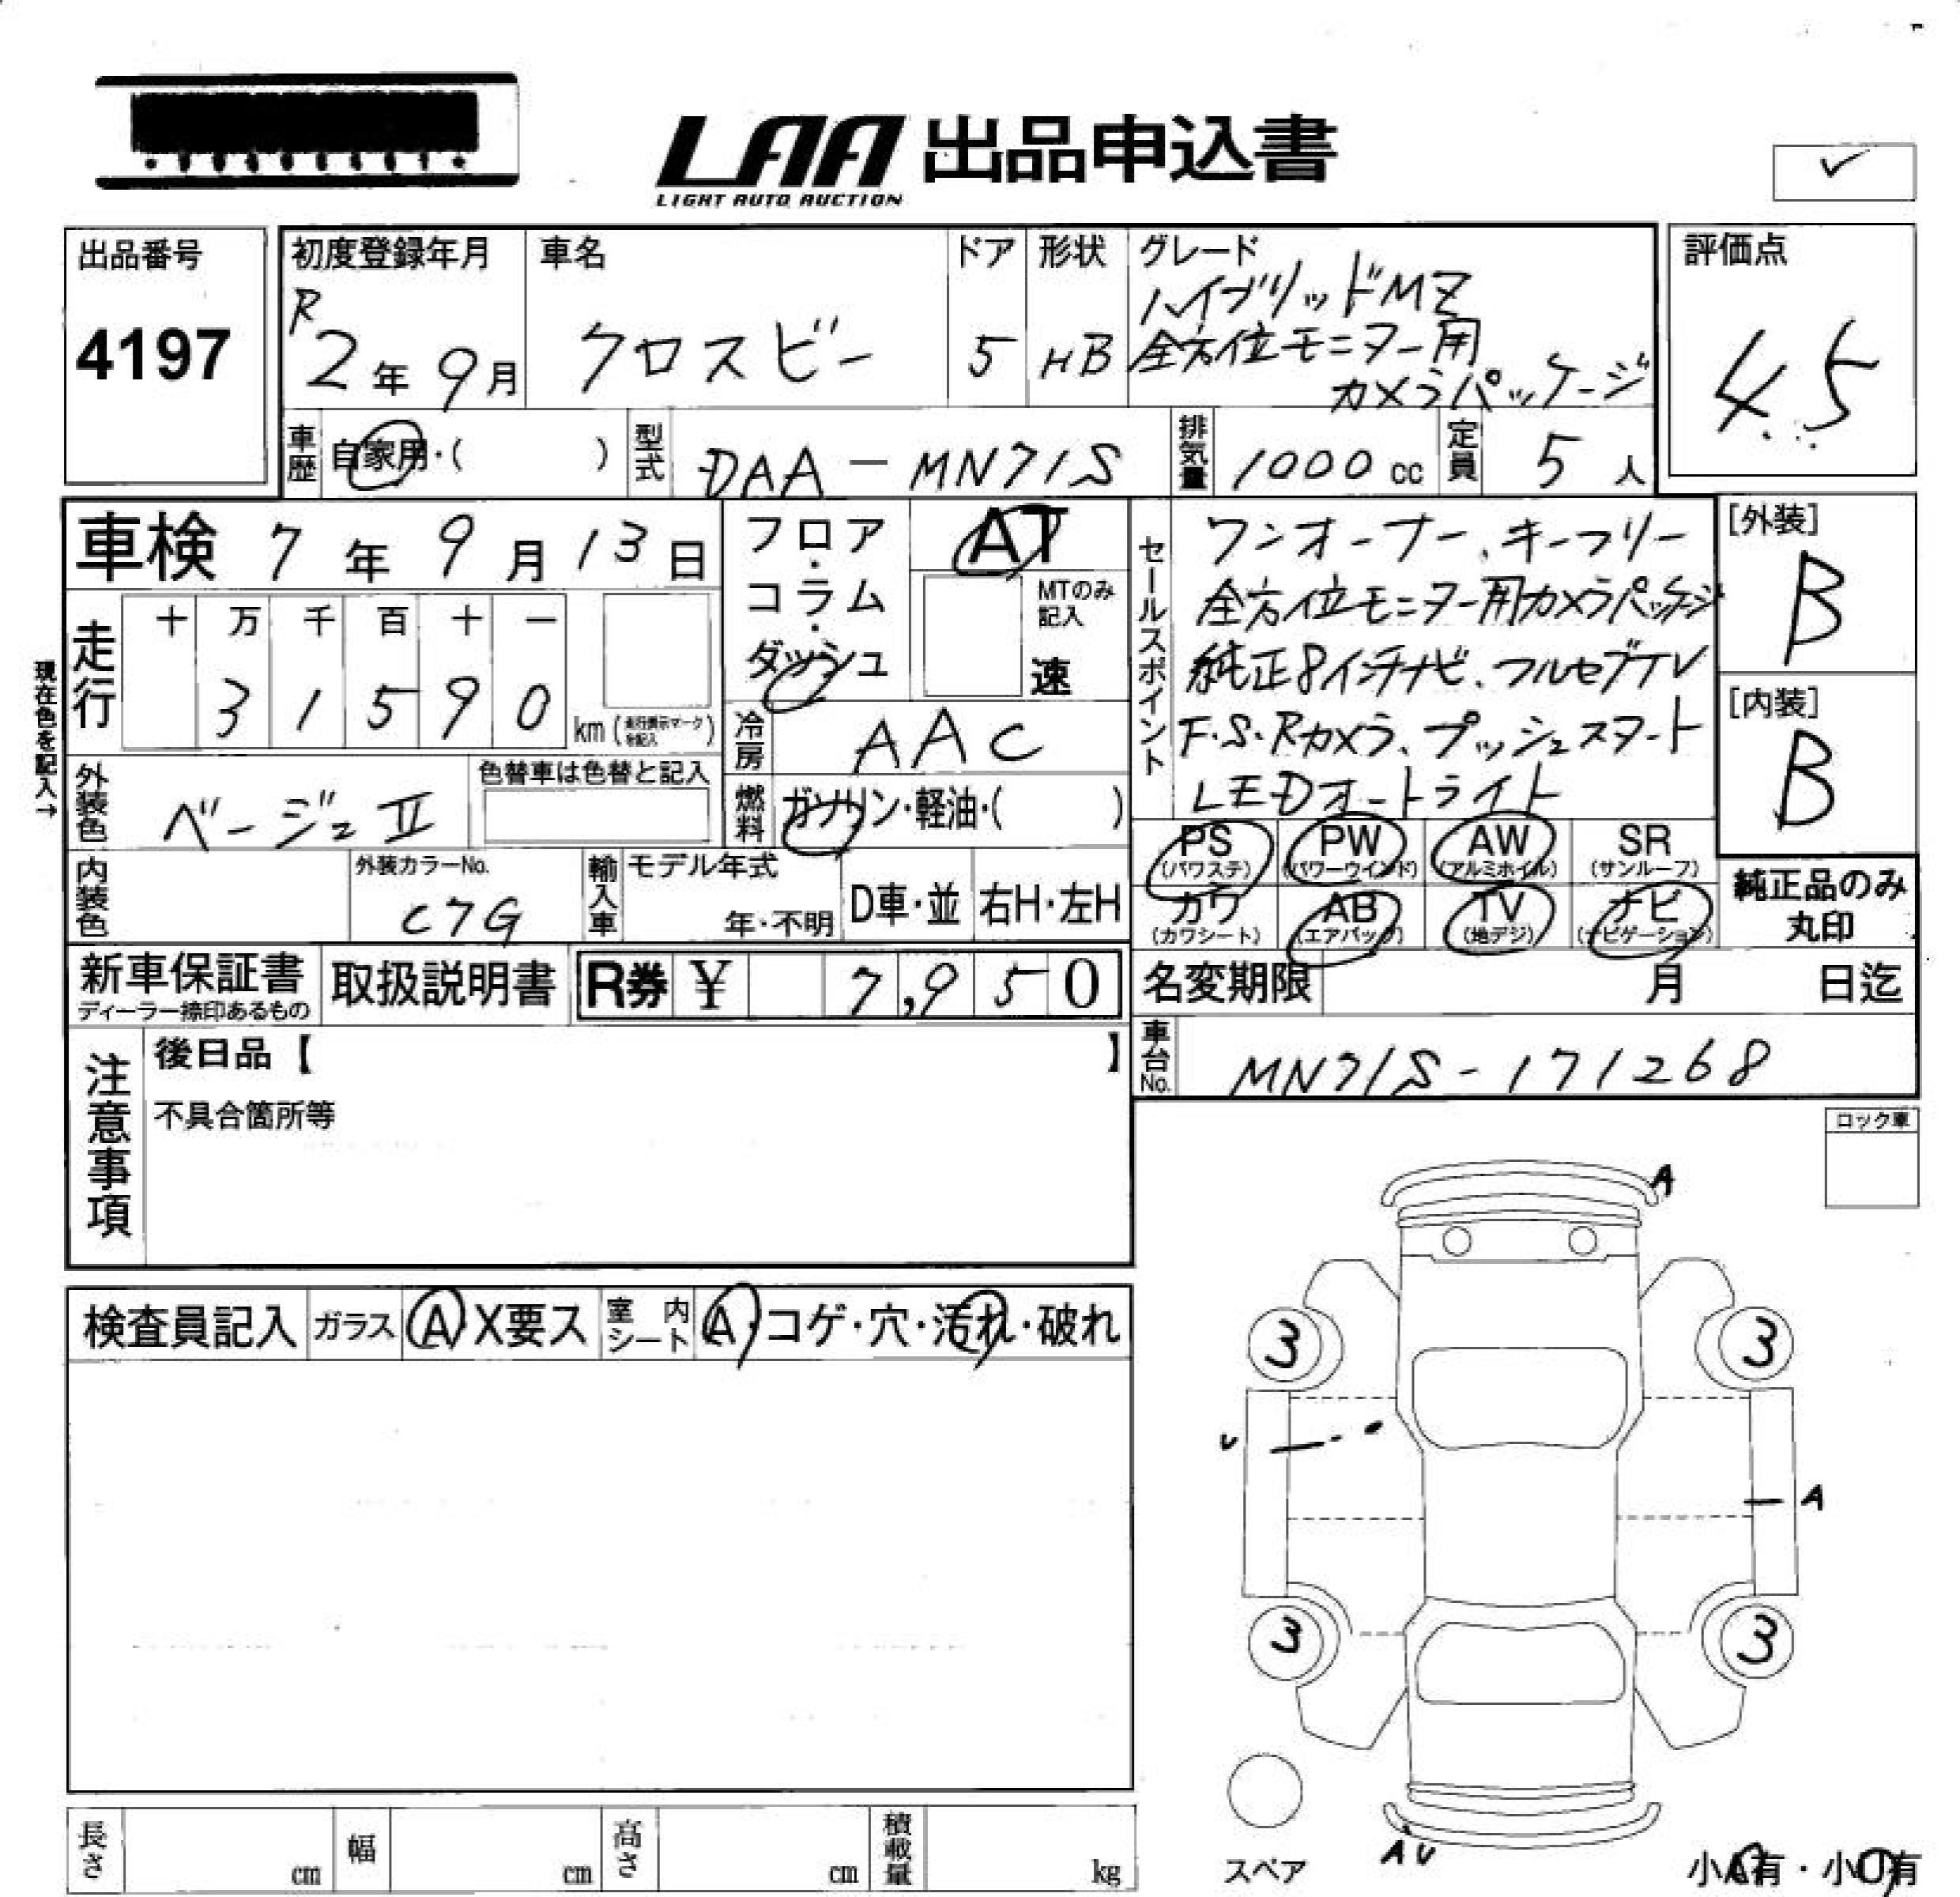 LAA 出品申込書
LIGHT AUTO AUCTION
✓
出品番号
4197
初度登録年月
R
2年9月
車名
クロスビー
ドア
5
形状
HB
グレード
ハイブリッドMZ
全方位モニター用
カメラパッケージ
評価点
4.5
車歴 自家用・( )
型式 DAA-MN71S
排気量 1000cc
定員 5人
車検 7年9月13日
フロア・コラム・ダッシュ
AT
MTのみ記入
速
セールスポイント
ワンオーナー、キーフリー
全方位モニター用カメラパッケージ
純正8インチナビ、フルセグTV
F・S・Rカメラ、プッシュスタート
LEDオートライト
[外装]
B
[内装]
B
現在色を記入→
走行
十 万 千 百 十 一
3 1 5 9 0
km(走行表示マークを記入)
冷房 AAC
外装色 ベージュII
色替車は色替と記入
燃料 ガソリン・軽油・( )
PS (パワステ)
PW (パワーウインド)
AW (アルミホイル)
SR (サンルーフ)
カワ (カワシート)
AB (エアバック)
TV (地デジ)
ナビ (ナビゲーション)
純正品のみ
丸印
内装色
外装カラーNo.
C7G
輸入車
モデル年式
年・不明
D車・並
右H・左H
新車保証書
ディーラー捺印あるもの
取扱説明書
R券 ¥ 7,950
名変期限 月 日迄
車台No. MN71S-171268
注意事項
後日品【 】
不具合箇所等
ロック車
検査員記入
ガラス A X要ス
室内シート A・コゲ・穴・汚れ・破れ
A
3 3
U
A
3 3
スペア
AU
小A有・小U有
長さ cm
幅 cm
高さ cm
積載量 kg